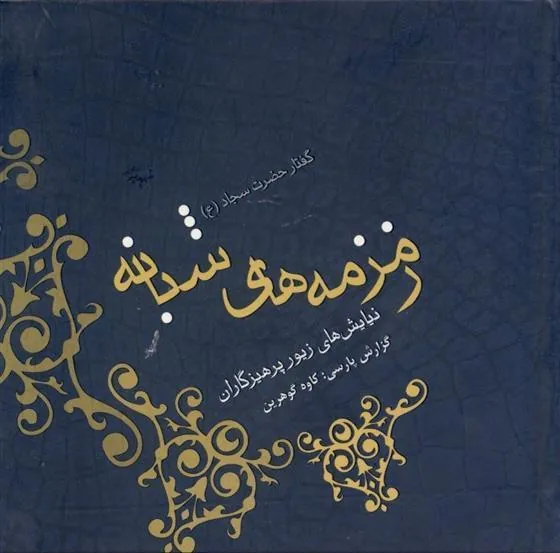 گفتار حضرت سجاد (ع)
زمزمه‌های شبانه
نیایش‌های زیور پرهیزگاران
گزارش پارسی: کاوه گوهرین